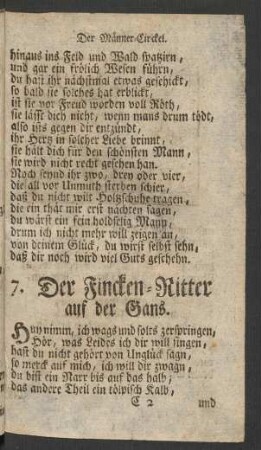 Der Männer-Circkel.
hinaus ins Feld und Wald spatzirn,
und gar ein frölich Wesen führn,
du hast ihr nächstmal etwas geschickt,
so bald sie solches hat erblickt,
ist sie vor Freud worden voll Röth,
sie lässt dich nicht, wenn mans drum tödt,
also ists gegen dir entzündt,
ihr Hertz in solcher Liebe brinnt,
sie hält dich für den schönsten Mann,
sie wird nicht recht gesehen han.
Noch seynd ihr zwo, drey oder vier,
die all vor Unmuth sterben schier,
daß du nicht wilt Holtzschuhe tragen,
die ein thät mir erst nächten sagen,
du wärst ein fein holdselig Mann,
drum ich nicht mehr will zeigen an,
von deinem Glück, du wirst selbst sehn,
daß dir noch wird viel Guts geschehn.
7. Der Fincken-Ritter
auf der Gans.
Huy nimm, ich wags und solts zerspringen,
Hör, was Leides ich dir will singen,
hast du nicht gehört von Unglück sagn,
so merck auf mich, ich will dir zwagn,
du bist ein Narr bis auf das halb,
das andere Theil ein tölpisch Kalb,
C 2 und